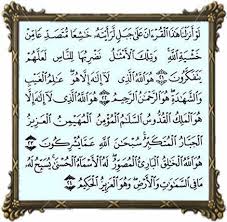 لَوْ أَنزَلْنَا هَٰذَا الْقُرْءَانَ عَلَىٰ جَبَلٍ لَّرَأَيْتَهُۥ خَٰشِعًا مُّتَصَدِّعًا مِّنْ
خَشْيَةِ اللَّهِ ۚ وَتِلْكَ الْأَمْثَٰلُ نَضْرِبُهَا لِلنَّاسِ لَعَلَّهُمْ
يَتَفَكَّرُونَ ٢١ هُوَ اللَّهُ الَّذِى لَآ إِلَٰهَ إِلَّا هُوَ ۖ عَٰلِمُ الْغَيْبِ
وَالشَّهَٰدَةِ ۖ هُوَ الرَّحْمَٰنُ الرَّحِيمُ ٢٢ هُوَ اللَّهُ الَّذِى لَآ إِلَٰهَ إِلَّا
هُوَ الْمَلِكُ الْقُدُّوسُ السَّلَٰمُ الْمُؤْمِنُ الْمُهَيْمِنُ الْعَزِيزُ
الْجَبَّارُ الْمُتَكَبِّرُ ۚ سُبْحَٰنَ اللَّهِ عَمَّا يُشْرِكُونَ ٢٣
هُوَ اللَّهُ الْخَٰلِقُ الْبَارِئُ الْمُصَوِّرُ ۖ لَهُ الْأَسْمَآءُ الْحُسْنَىٰ ۚ يُسَبِّحُ لَهُۥ
مَا فِى السَّمَٰوَٰتِ وَالْأَرْضِ ۖ وَهُوَ الْعَزِيزُ الْحَكِيمُ ٢٤